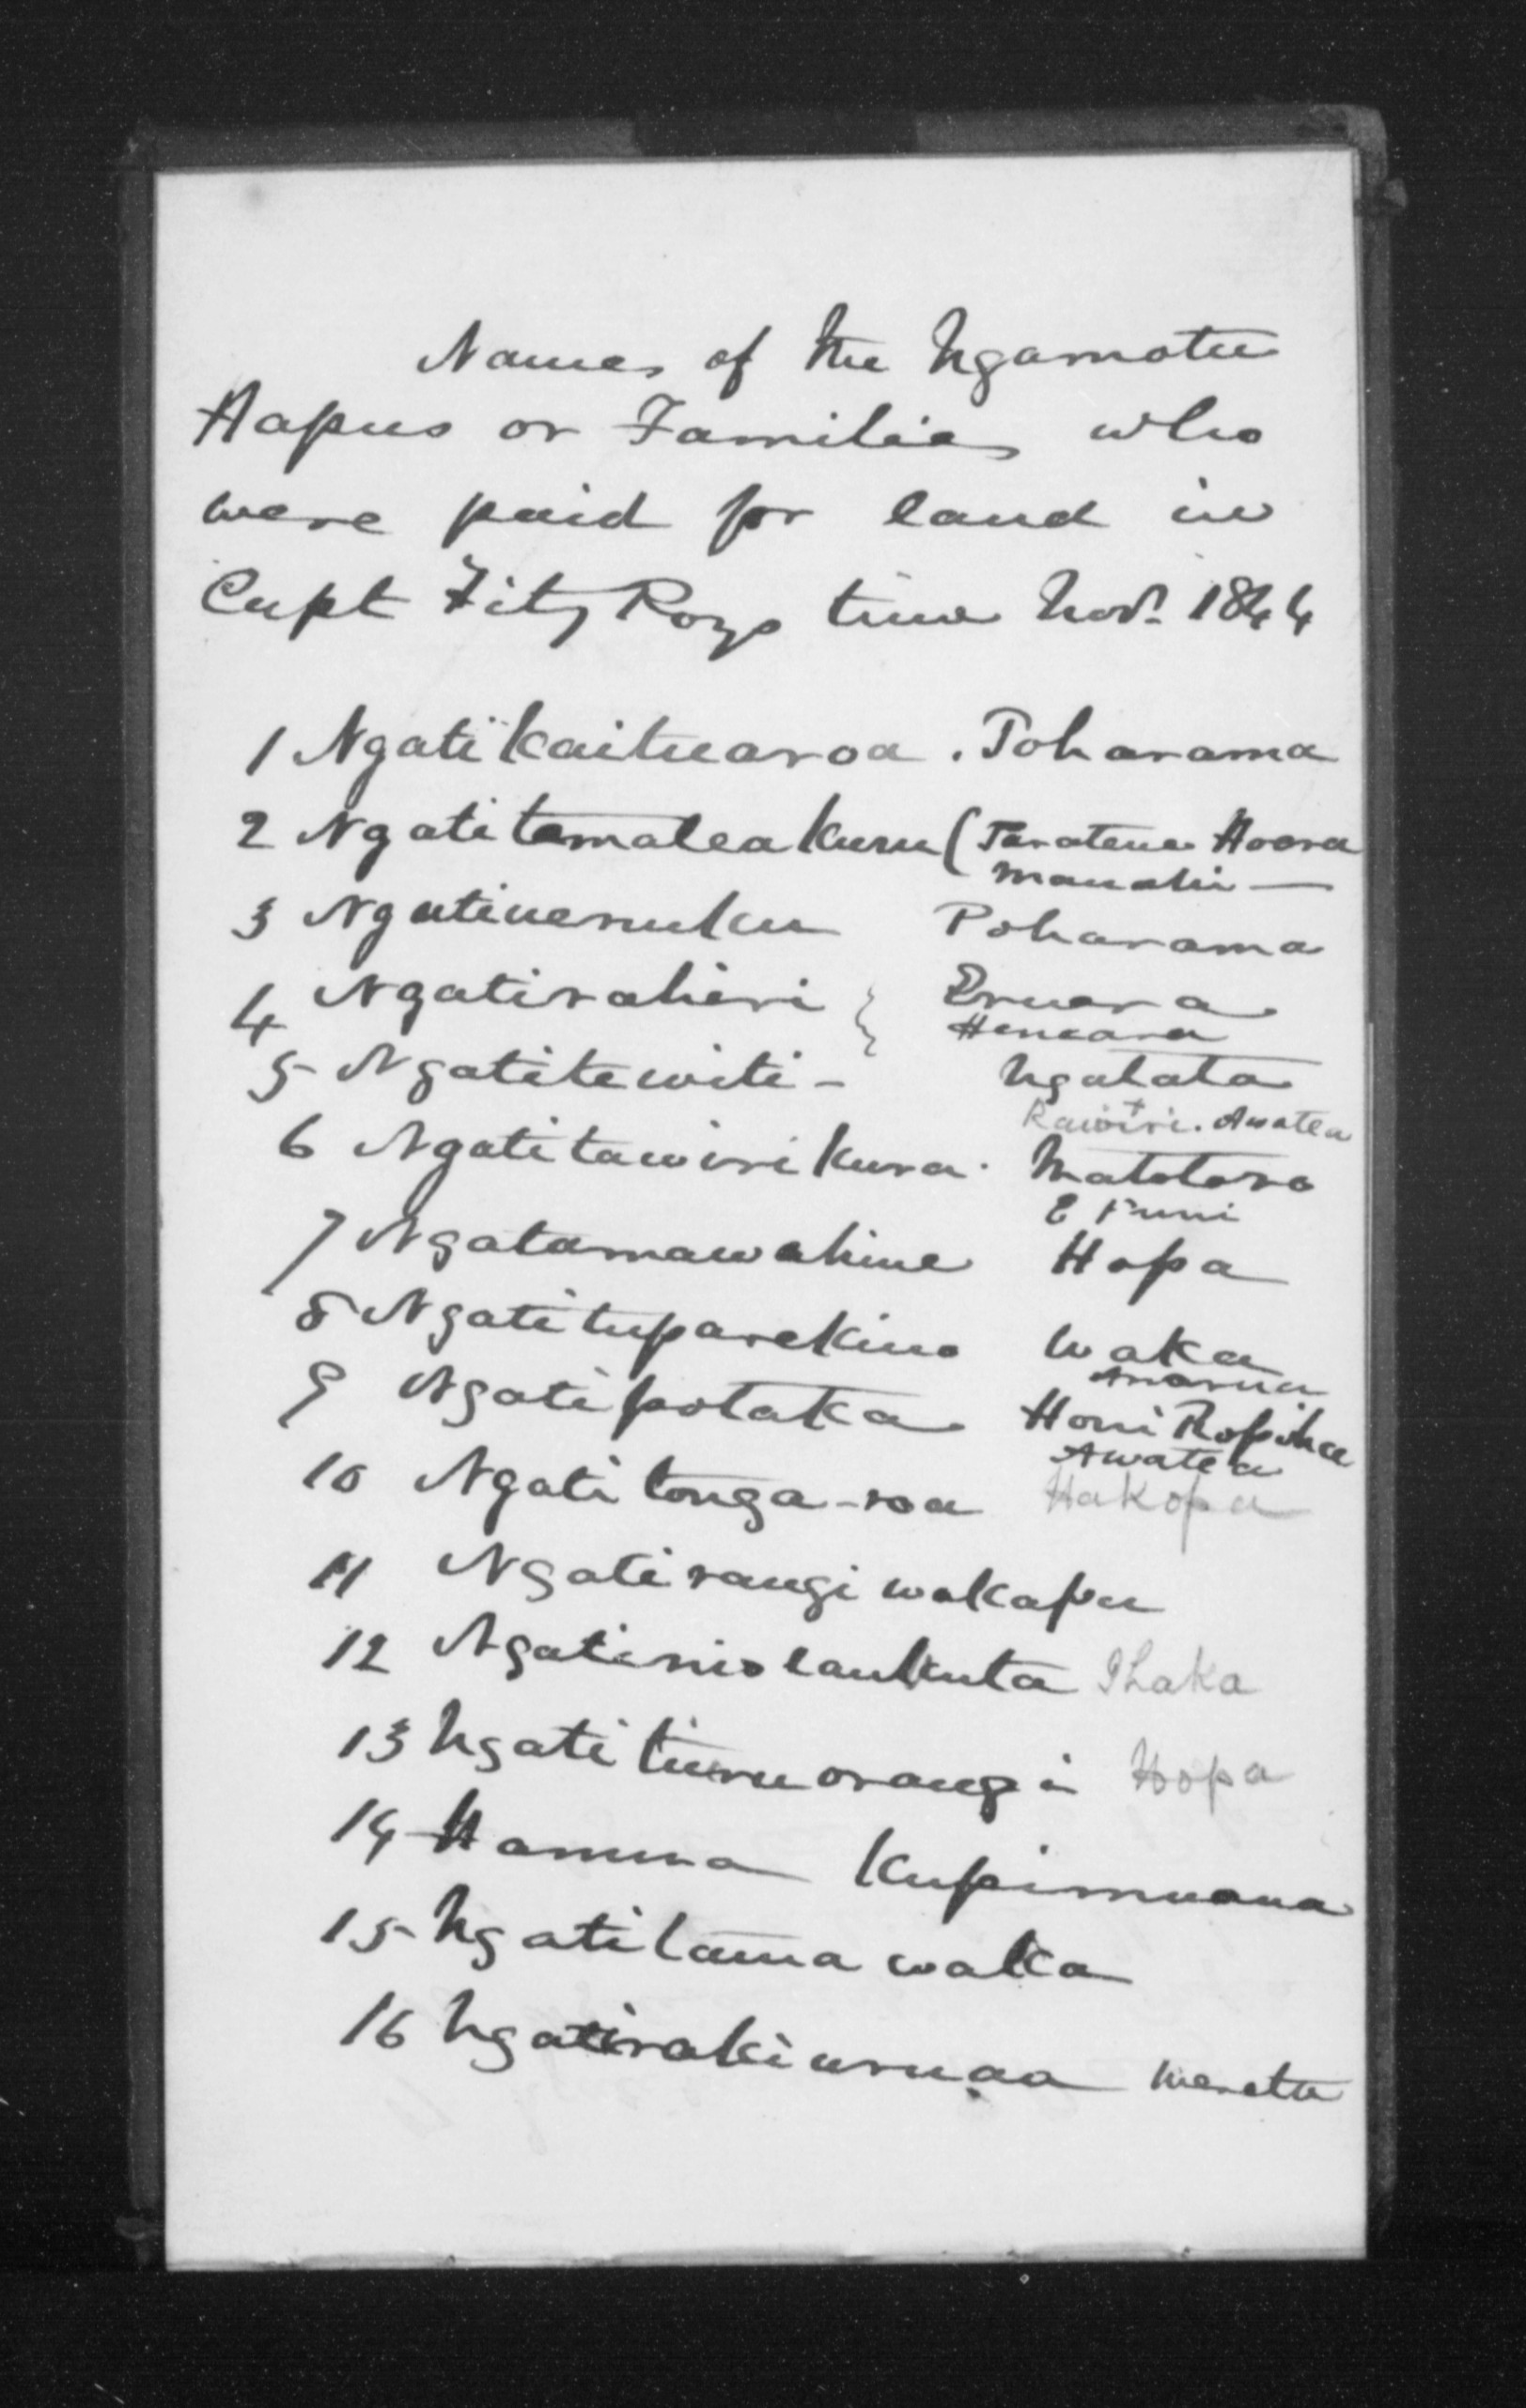 Names of the Ngamotu
Hapus or Families who
were paid for land in
Capt Fitz Roys time Novr. 1844
1 Ngatikaituaroa . Poharama
2 Ngatitemateakuru ( Taratena Hoera
Manahi —
3 Ngatiuenuku Poharama
4 Ngatirahiri } Eruera
Heneara
5 Ngatitewiti - Ngatata
Rawiri . Awatea
6 Ngatitawirikura . Matotoro
E Puni
7 Ngatamawahine Hopa
8 Ngatituparekino Waka
9 Ngatipotaka Honi Ropiha
Awatea
10 Ngatitonga-roa Hakopa
11 Ngatirangiwakapu
12 Ngatiniotaukuta Ihaka
13 Ngatitiuruorangi Hopa
14 Hamua Kupimuana
15 Ngatitamawaka
16 Ngatirakiuruaa